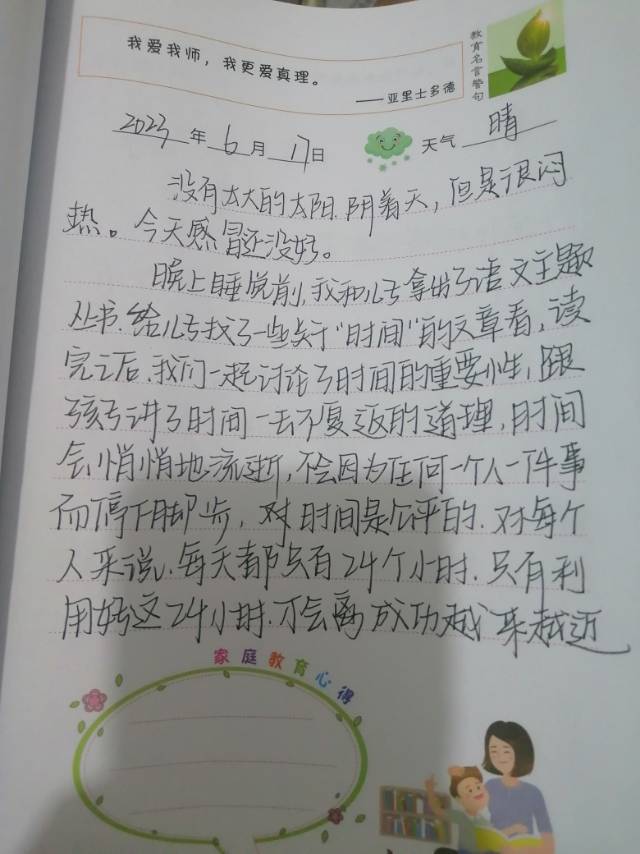 我爱我师，我更爱真理。
——亚里士多德
教育名言警句
2023年6月17日 天气 晴
没有太大的太阳.阴着天，但是很闷
热。今天感冒还没好。
晚上睡觉前,我和儿子拿出了语文主题
丛书.给儿子找了一些关于"时间"的文章看，读
完之后.我们一起讨论了时间的重要性,跟
孩子讲了时间一去不复返的道理，时间
会悄悄地流逝,不会因为任何一个人一件事
而停下脚步，对时间是公平的.对每个
人来说.每天都只有24个小时.只有利
用好这24小时.才会离成功越来越近
家庭教育心得